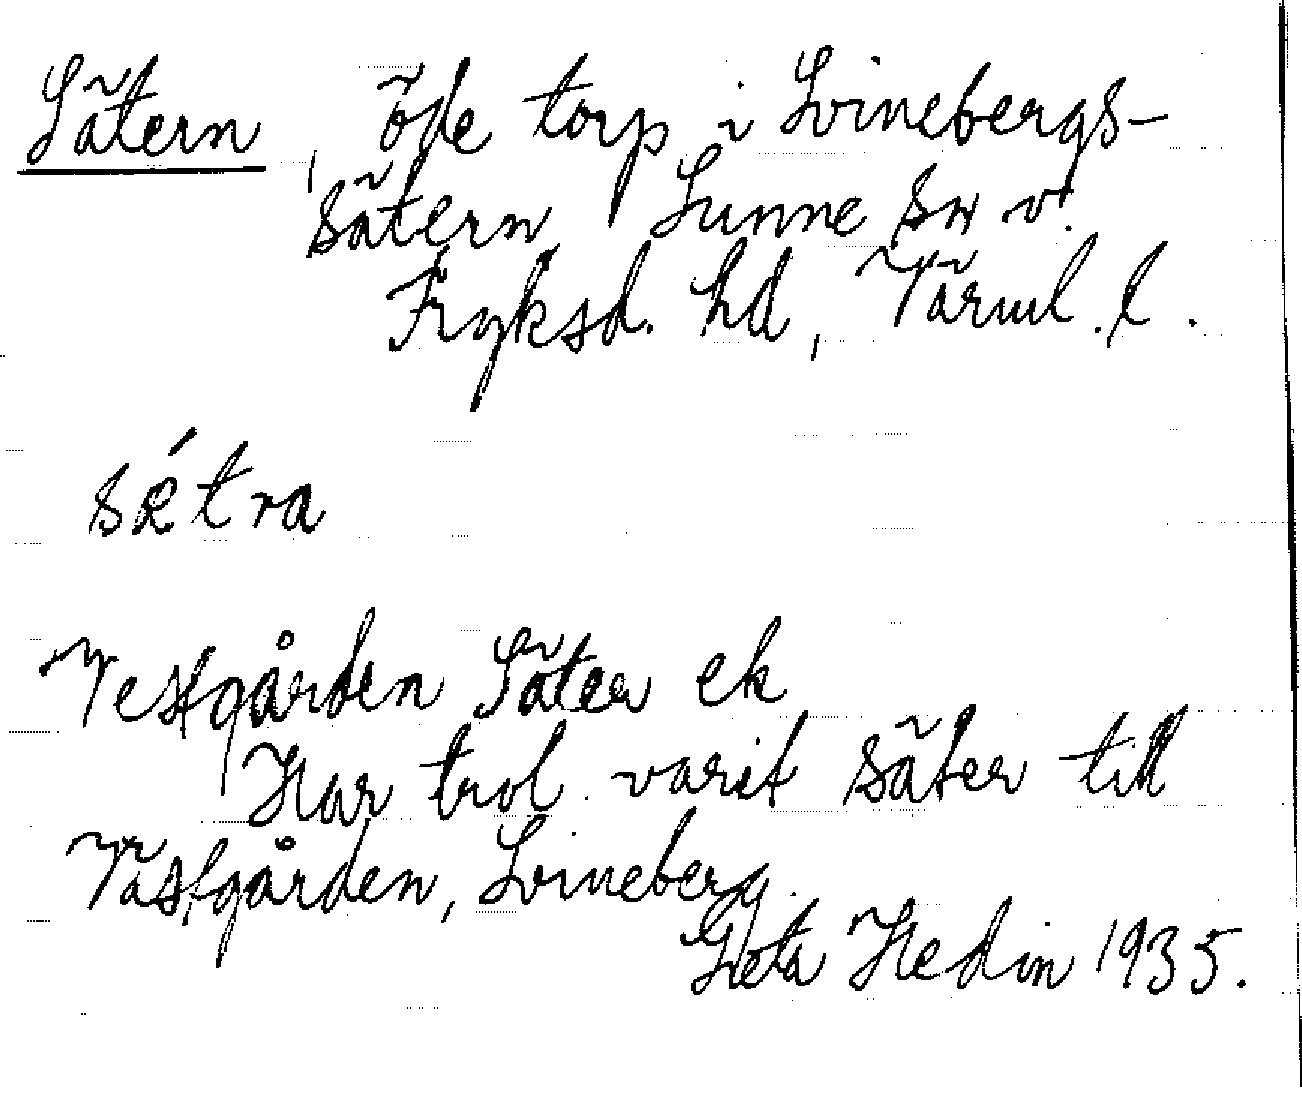 Sätern, öde torp i Svinebergs-
sätern Sunne sn v.
Fryksd. hd, Värml. l.
sǽtra
Vestgården Säter ek
Har trol. varit säter till
Västgården, Svineberg.
Greta Hedin 1935.